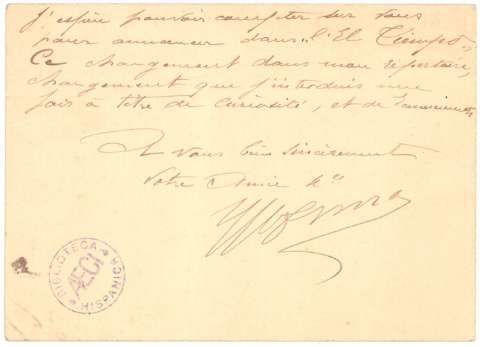 j'espère pouvoir compter sur vous
pour annoncer dans "l'El Tiempo"
Ce changement dans mon répertoire,
changement que j'introduis une
fois à titre de curiosité, et de
A vous bien sincèrement
Votre Amie
BIBLIOTECA
AECI
HISPANICA